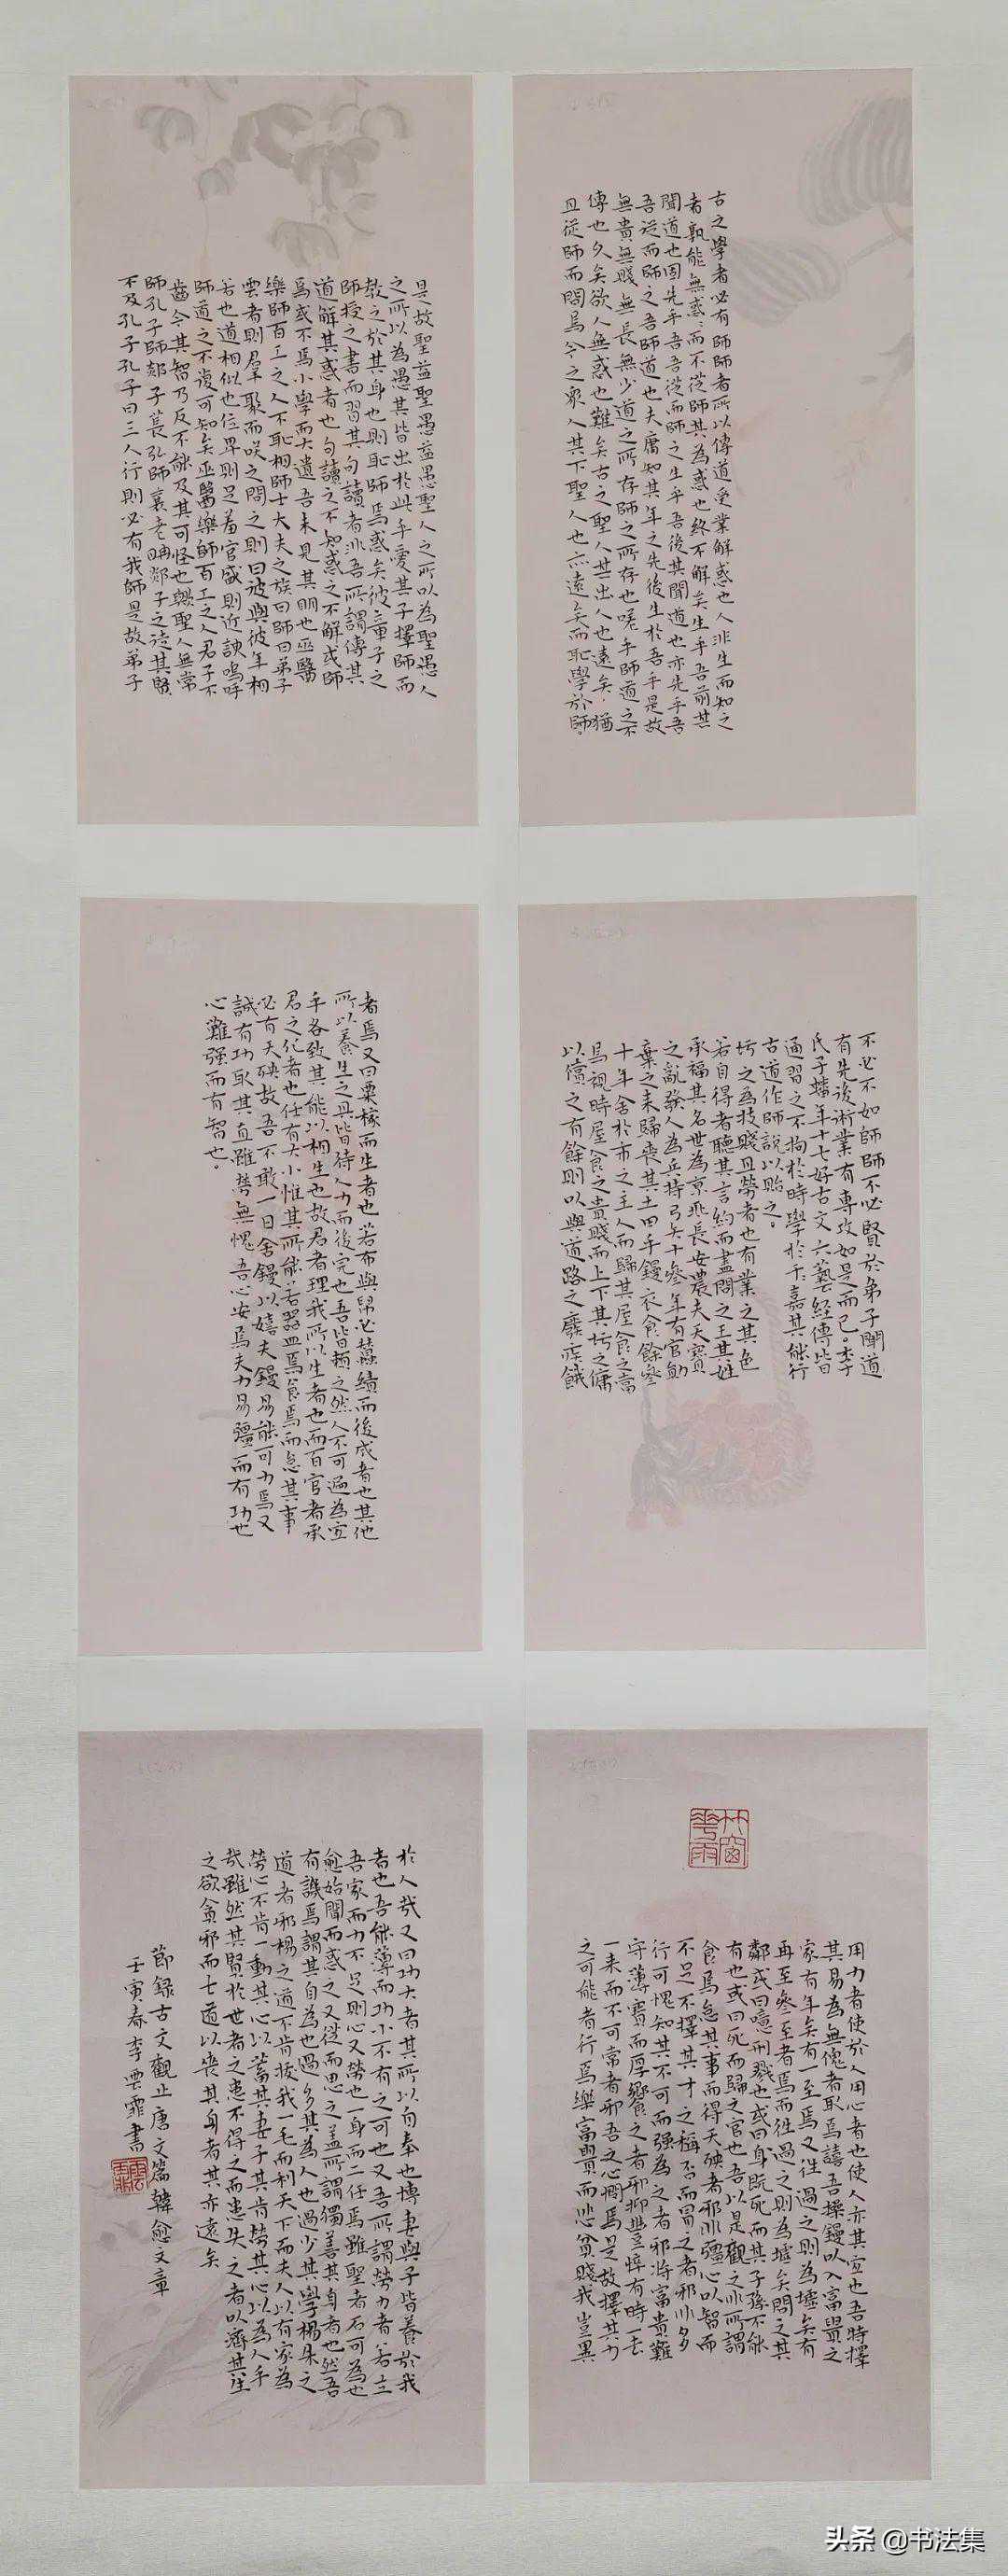 古之學者必有師師者所以傳道受業解惑也人非生而知之
者孰能無惑:而不從師其為惑也終不解矣生乎吾前其
聞道也固先乎吾吾從而師之生乎吾後其聞道也亦先乎吾
吾從而師之吾師道也夫庸知其年之先後生於吾乎是故
無貴無賤無長無少道之所存師之所存也嗟乎師道之不
傳也久矣欲人無惑也難矣古之聖人其出人也遠矣猶
且從師而問焉今之衆人其下聖人也亦遠矣而恥學於師。
是故聖益聖愚益愚聖人之所以為聖愚人
之所以為愚其皆出於此乎愛其子擇師而
教之於其身也則恥師焉惑矣彼童子之
師授之書而習其句讀者非吾所謂傳其
道解其惑者也句讀之不知惑之不解或師
焉或不焉小學而大遺吾未見其明也巫醫
樂師百工之人不恥相師士大夫之族曰師曰弟子
雲者則羣聚而咲之問之則曰彼與彼年相
若也道相似也位卑則足羞官盛則近諛嗚呼
師道之不復可知矣巫醫樂師百工之人君子不
齒今其智乃反不能及其可怪也歟聖人無常
師孔子師郯子萇弘師襄老聃郯子之徒其賢
不及孔子孔子曰三人行則必有我師是故弟子
不必不如師師不必賢於弟子聞道
有先後術業有專攻如是而已。李
氏子蟠年十七好古文六藝經傳皆
通習之不拘於時學於予嘉其能行
古道作師說以貽之。
圬之為技賤且勞者也有業之其色
若自得者聽其言約而盡問之王其姓
承福其名世為京兆長安農夫天寶
之亂發人為兵持弓矢十叄年有官勛
棄之来歸喪其土田手鏝衣食餘叄
十年舍於市之主人而歸其屋食之當
焉視時屋食之貴賤而上下其圬之傭
以償之有餘則以與道路之廢疾餓
者焉又曰粟稼而生者也若布與帛必蠶績而後成者也其他
所以養生之具皆待人力而後完也吾皆賴之然人不可遍為宜
乎各致其能以相生也故君者理我所以生者也而百官者承
君之化者也任有大小惟其所能若器皿焉食焉而怠其事
必有天殃故吾不敢一日舍鏝以嬉夫鏝易能可力焉又
誠有功取其直雖勞無愧吾心安焉夫力易彊而有功也
心難强而有智也。
竹窗華雨
用力者使於人用心者也使人亦其宜也吾特擇
其易為無愧者取焉嘻吾操鏝以入富貴之
家有年矣有一至焉又往過之則為墟矣有
再至叄至者焉而往過之則為墟矣問之其
鄰或曰噫刑戮也或曰身既死而其子孫不能
有也或曰死而歸之官也吾以是觀之非所謂
食焉怠其事而得天殃者邪非彊心以智而
不足不擇其才之稱否而冒之者邪非多
行可愧知其不可而强為之者邪將富貴難
守薄實而厚饗之者邪抑豐悴有時一去
一来而不可常者邪吾之心憫焉是故擇其力
之可能者行焉樂富貴而悲貧賤我豈異
於人哉又曰功大者其所以自奉也博妻與子皆養於我
者也吾能薄而功小不有之可也又吾所謂勞力者若立
吾家而力不足則心又勞也一身而二任焉雖聖者不可為也
愈始聞而惑之又從而思之盖所謂獨善其身者也然吾
有譏焉謂其自為也過多其為人也過少其學楊朱之
道者邪楊之道不肯拔我一毛而利天下而夫人以有家為
勞心不肯一動其心以蓄其妻子其肯勞其心以為人乎
哉雖然其賢於世者之患不得之而患失之者以濟其生
之欲貪邪而亡道以喪其身者其亦遠矣
節録古文觀止唐文篇韓愈文章
壬寅春李雲霏書
頭条 @书法集